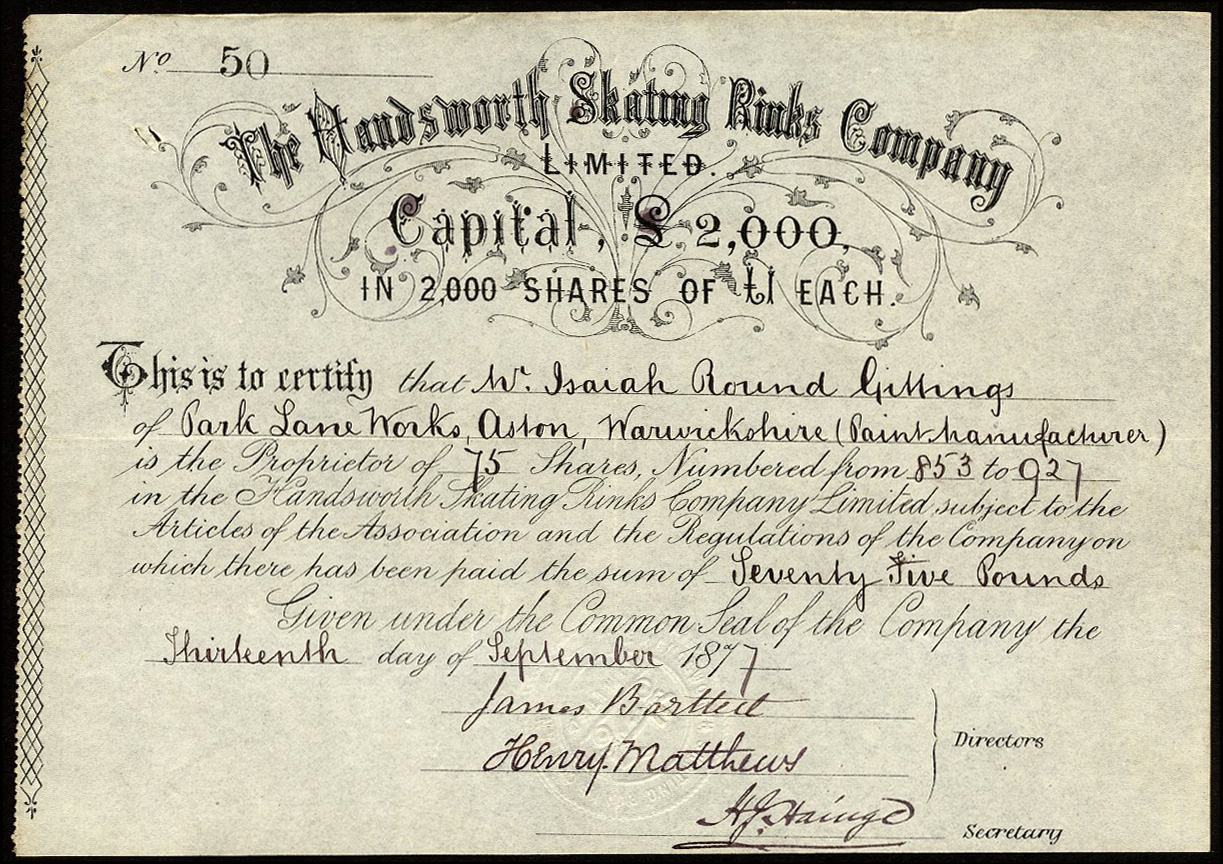 No 50
The Handsworth Skating Rinks Company
LIMITED.
Capital, £2,000,
IN 2,000 SHARES OF £1 EACH.
This is to certify that Mr. Isaiah Round Gittings
of Park Lane Works, Aston, Warwickshire (Paint Manufacturer)
is the Proprietor of 75 Shares, Numbered from 853 to 927
in the Handsworth Skating Rinks Company Limited subject to the
Articles of the Association and the Regulations of the Company on
which there has been paid the sum of Seventy Five Pounds
Given under the Common Seal of the Company the
Thirteenth day of September 1877
James Bartlett
Henry Matthews
Directors
H.J. Hainge
Secretary